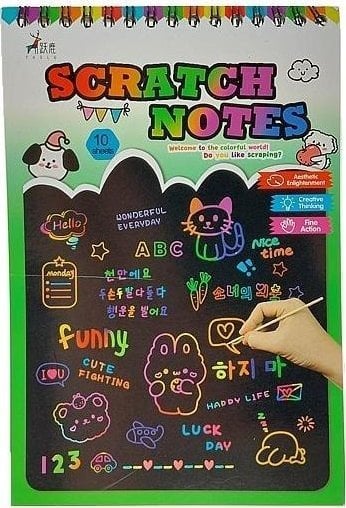 跃鹿
YUELU
SCRATCH
NOTES
10
sheets
Welcome to the colorful world!
Do you like scraping?
Aesthetic
Enlightenment
Creative
Thinking
Fine
Action
Hello
WONDERFUL
EVERYDAY
ABC
Nice
time
monday
천만에요
두손두발다들다
행운을 빌어요
소녀의
funny
하지 마
I
U
CUTE
FIGHTING
HAPPY LIFE
LUCK
DAY
zz
123